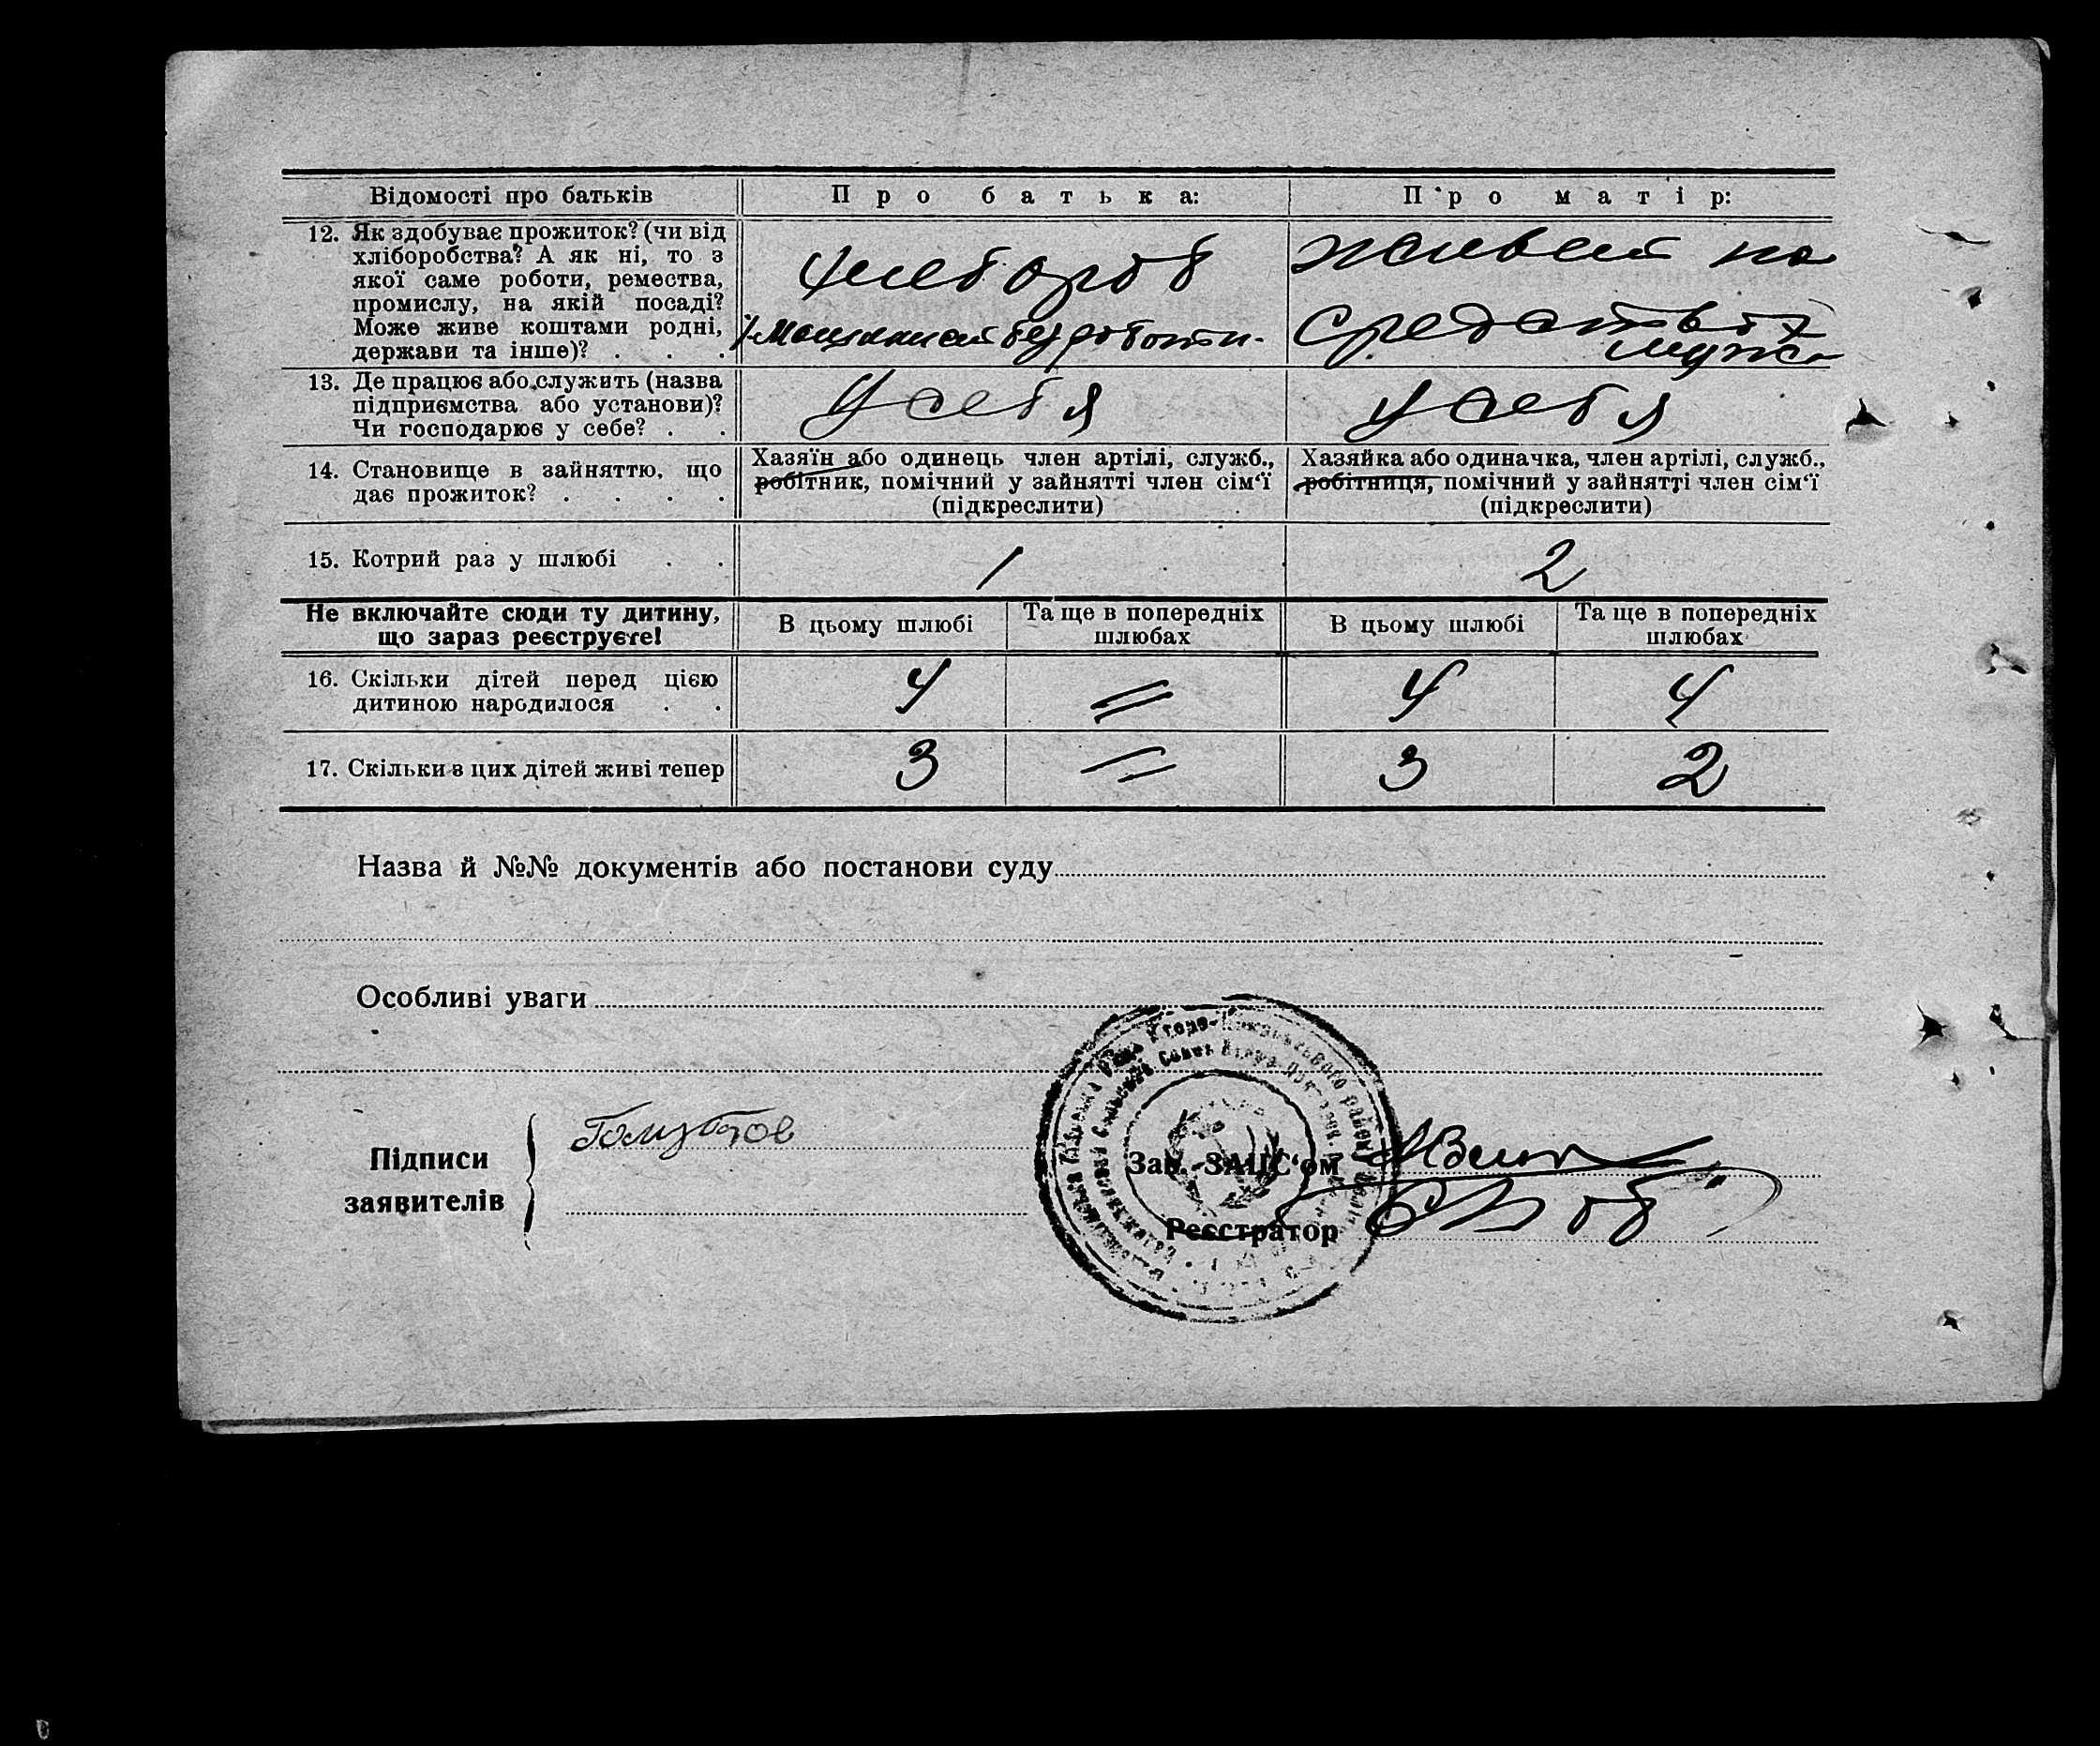 Відомості про батьків
Про батька:
Про матір:
12. Як здобуває прожиток? (чи від
хліборобства? А як ні, то з
якої саме роботи, ремества,
промислу, на якій посаді?
Може живе коштами родні,
держави та інше)? . . .
хлебороб
Машинист без роботи.
живет на
средства
мужа
13. Де працює або служить (назва
підприємства або установи)?
Чи господарює у себе? . .
У себя
у себя
14. Становище в зайняттю, що
дає прожиток? . . . .
Хазяїн або одинець член артілі, служб.,
робітник, помічний у зайнятті член сім‘ї
(підкреслити)
Хазяйка або одиначка, член артілі, служб.,
робітниця, помічний у зайнятті член сім‘ї
(підкреслити)
15. Котрий раз у шлюбі . .
1
2
Не включайте сюди ту дитину,
що зараз реєструєте!
В цьому шлюбі
Та ще в попередніх
шлюбах
В цьому шлюбі
Та ще в попередніх
шлюбах
16. Скільки дітей перед цією
дитиною народилося . .
4
=
4
4
17. Скільки з цих дітей живі тепер
3
=
3
2
Назва й №№ документів або постанови суду
Особливі уваги
Підписи
заявителів
Зав. ЗАЦС‘ом
Реєстратор